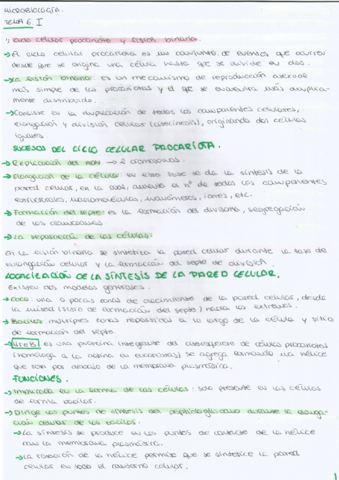 MICROBIOLOGÍA.
TEMA 6. I
1. Ciclo celular procarionte y fisión binaria.
→ El ciclo celular procariota es un conjunto de eventos que ocurren
desde que se origina una célula hasta que se divide en dos.
→ La fisión binaria: es un mecanismo de reproducción asexual
más simple de los procariotas y el que se encuentra más amplia-
mente distribuido.
→ Consiste en la duplicación de todos los componentes celulares,
elongación y división celular (citocinesis), originando dos células
iguales.
SUCESOS DEL CICLO CELULAR PROCARIOTA.
→ Replicación del → 2 cromosomas.
→ Elongación de la célula: en esta fase se da la síntesis de la
pared celular, en la cual, aumenta el nº de todos los componentes
estructurales, macromoléculas, monómeros, iones, etc.
→ Formación del septo: es la formación del divisoma, segregación
de los cromosomas.
→ La separación de las células.
En la fisión binaria se sintetiza la pared celular durante la fase de
elongación celular y la formación del septo de división.
LOCALIZACIÓN DE LA SÍNTESIS DE LA PARED CELULAR.
Existen dos modelos generales.
→ Coco: una o pocas zonas de crecimiento de la pared celular, desde
la mitad (sitio de formación del septo) hasta los extremos.
→ Bacilos: múltiples zonas repartidas a lo largo de la célula y sitio
de formación del septo.
→ MreB: es una proteína integrante del citoesqueleto de células procariotas
(homóloga a la actina en eucariotas) se agrega formando una hélice
que está por debajo de la membrana plasmática.
FUNCIONES.
→ Implicada en la forma de las células: solo presente en las células
de forma bacilar.
→ Dirige los puntos de síntesis del peptidoglucano durante la elonga-
ción celular de los bacilos.
→ La síntesis se produce en los puntos de contacto de la hélice
con la membrana plasmática.
→ La rotación de la hélice permite que se sintetice la pared
celular en todo el celular.
1